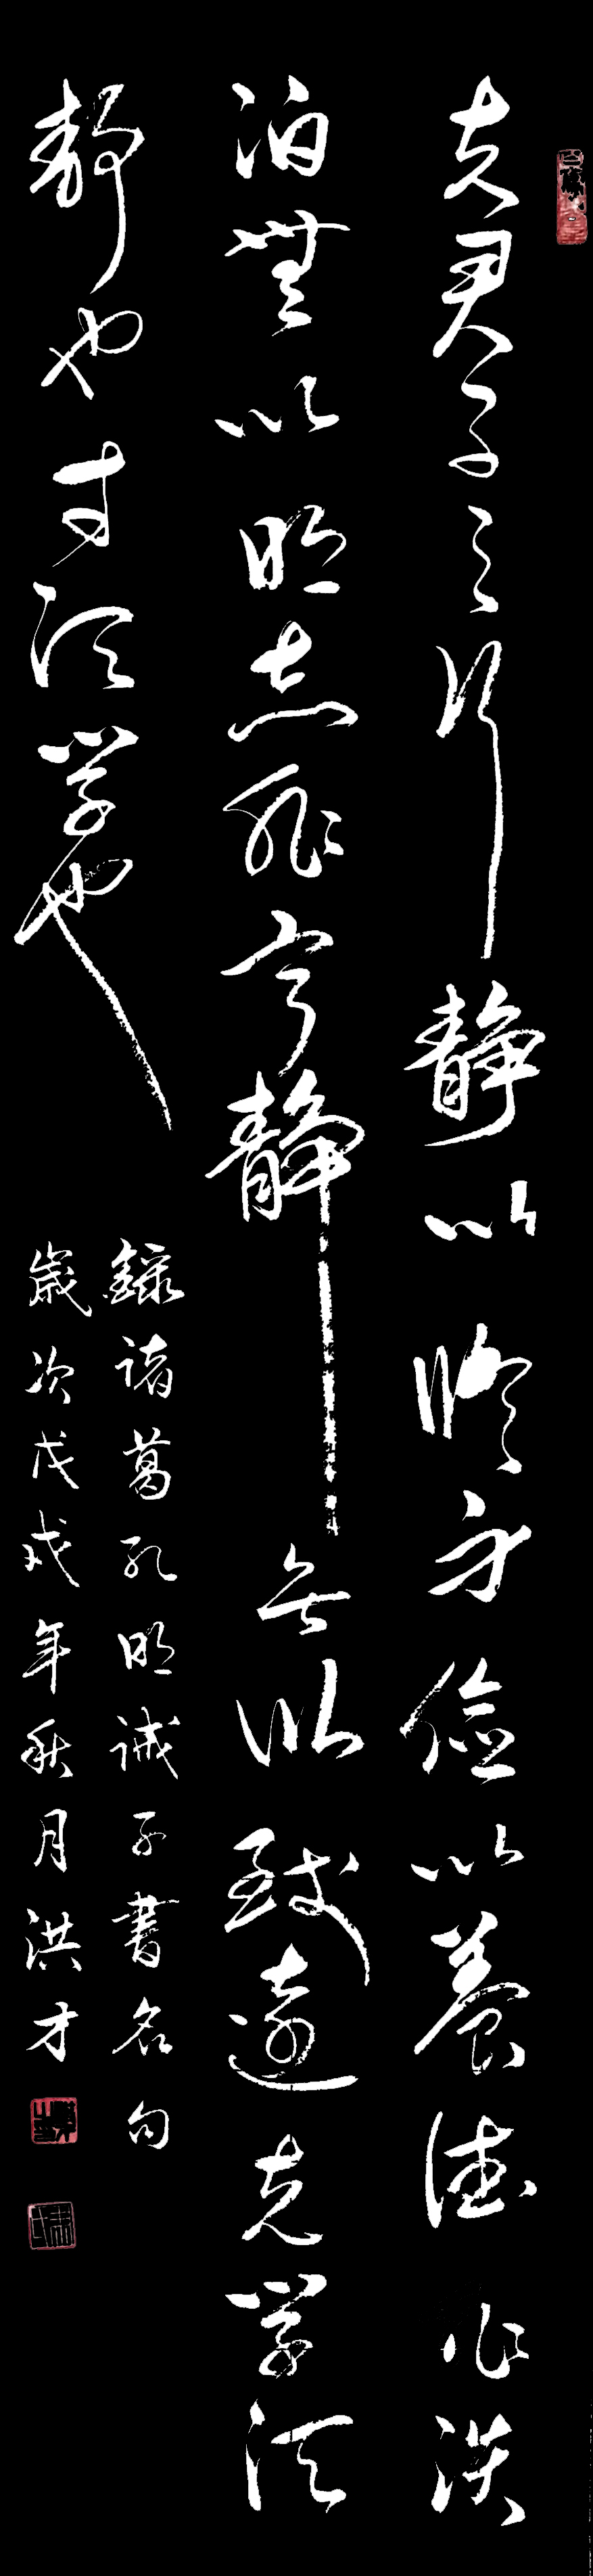 夫君子之行静以修身俭以养德非淡
泊无以明志非宁静无以致远夫学须
静也才须学也
録诸葛孔明诫子書名句
歳次戊戌年秋月洪才